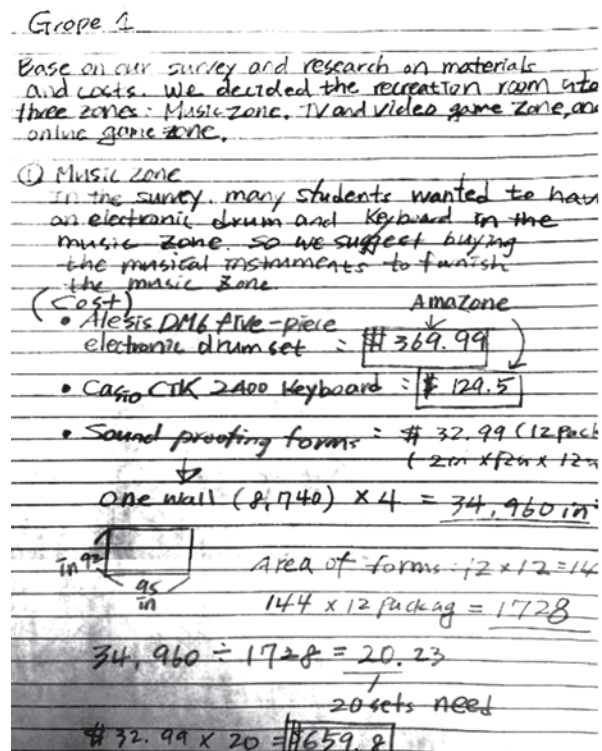 Grope 1
Base on our survey and research on materials
and costs. we decided the recreation room into
three zones: Music zone. TV and Video game zone, and
online game zone.
① Music zone
In the survey. many students wanted to hav
an electronic drum and keyboard in the
music zone. so we suggest buying
the musical instruments to furnish
the music zone.
(Cost) Amazone
• Alesis DM6 five-piece
electronic drum set : $ 369.99
• Casio CTK 2400 keyboard : $ 129.5
• Sound proofing forms : $ 32.99 (12 pack
(2in x 12in x 12in
One wall (8,740) x 4 = 34,960 in
in 92
95
in
Area of forms : 12 x 12 = 14
144 x 12 packag = 1728
34,960 ÷ 1728 = 20.23
20 sets need
$ 32.99 x 20 = $659.8